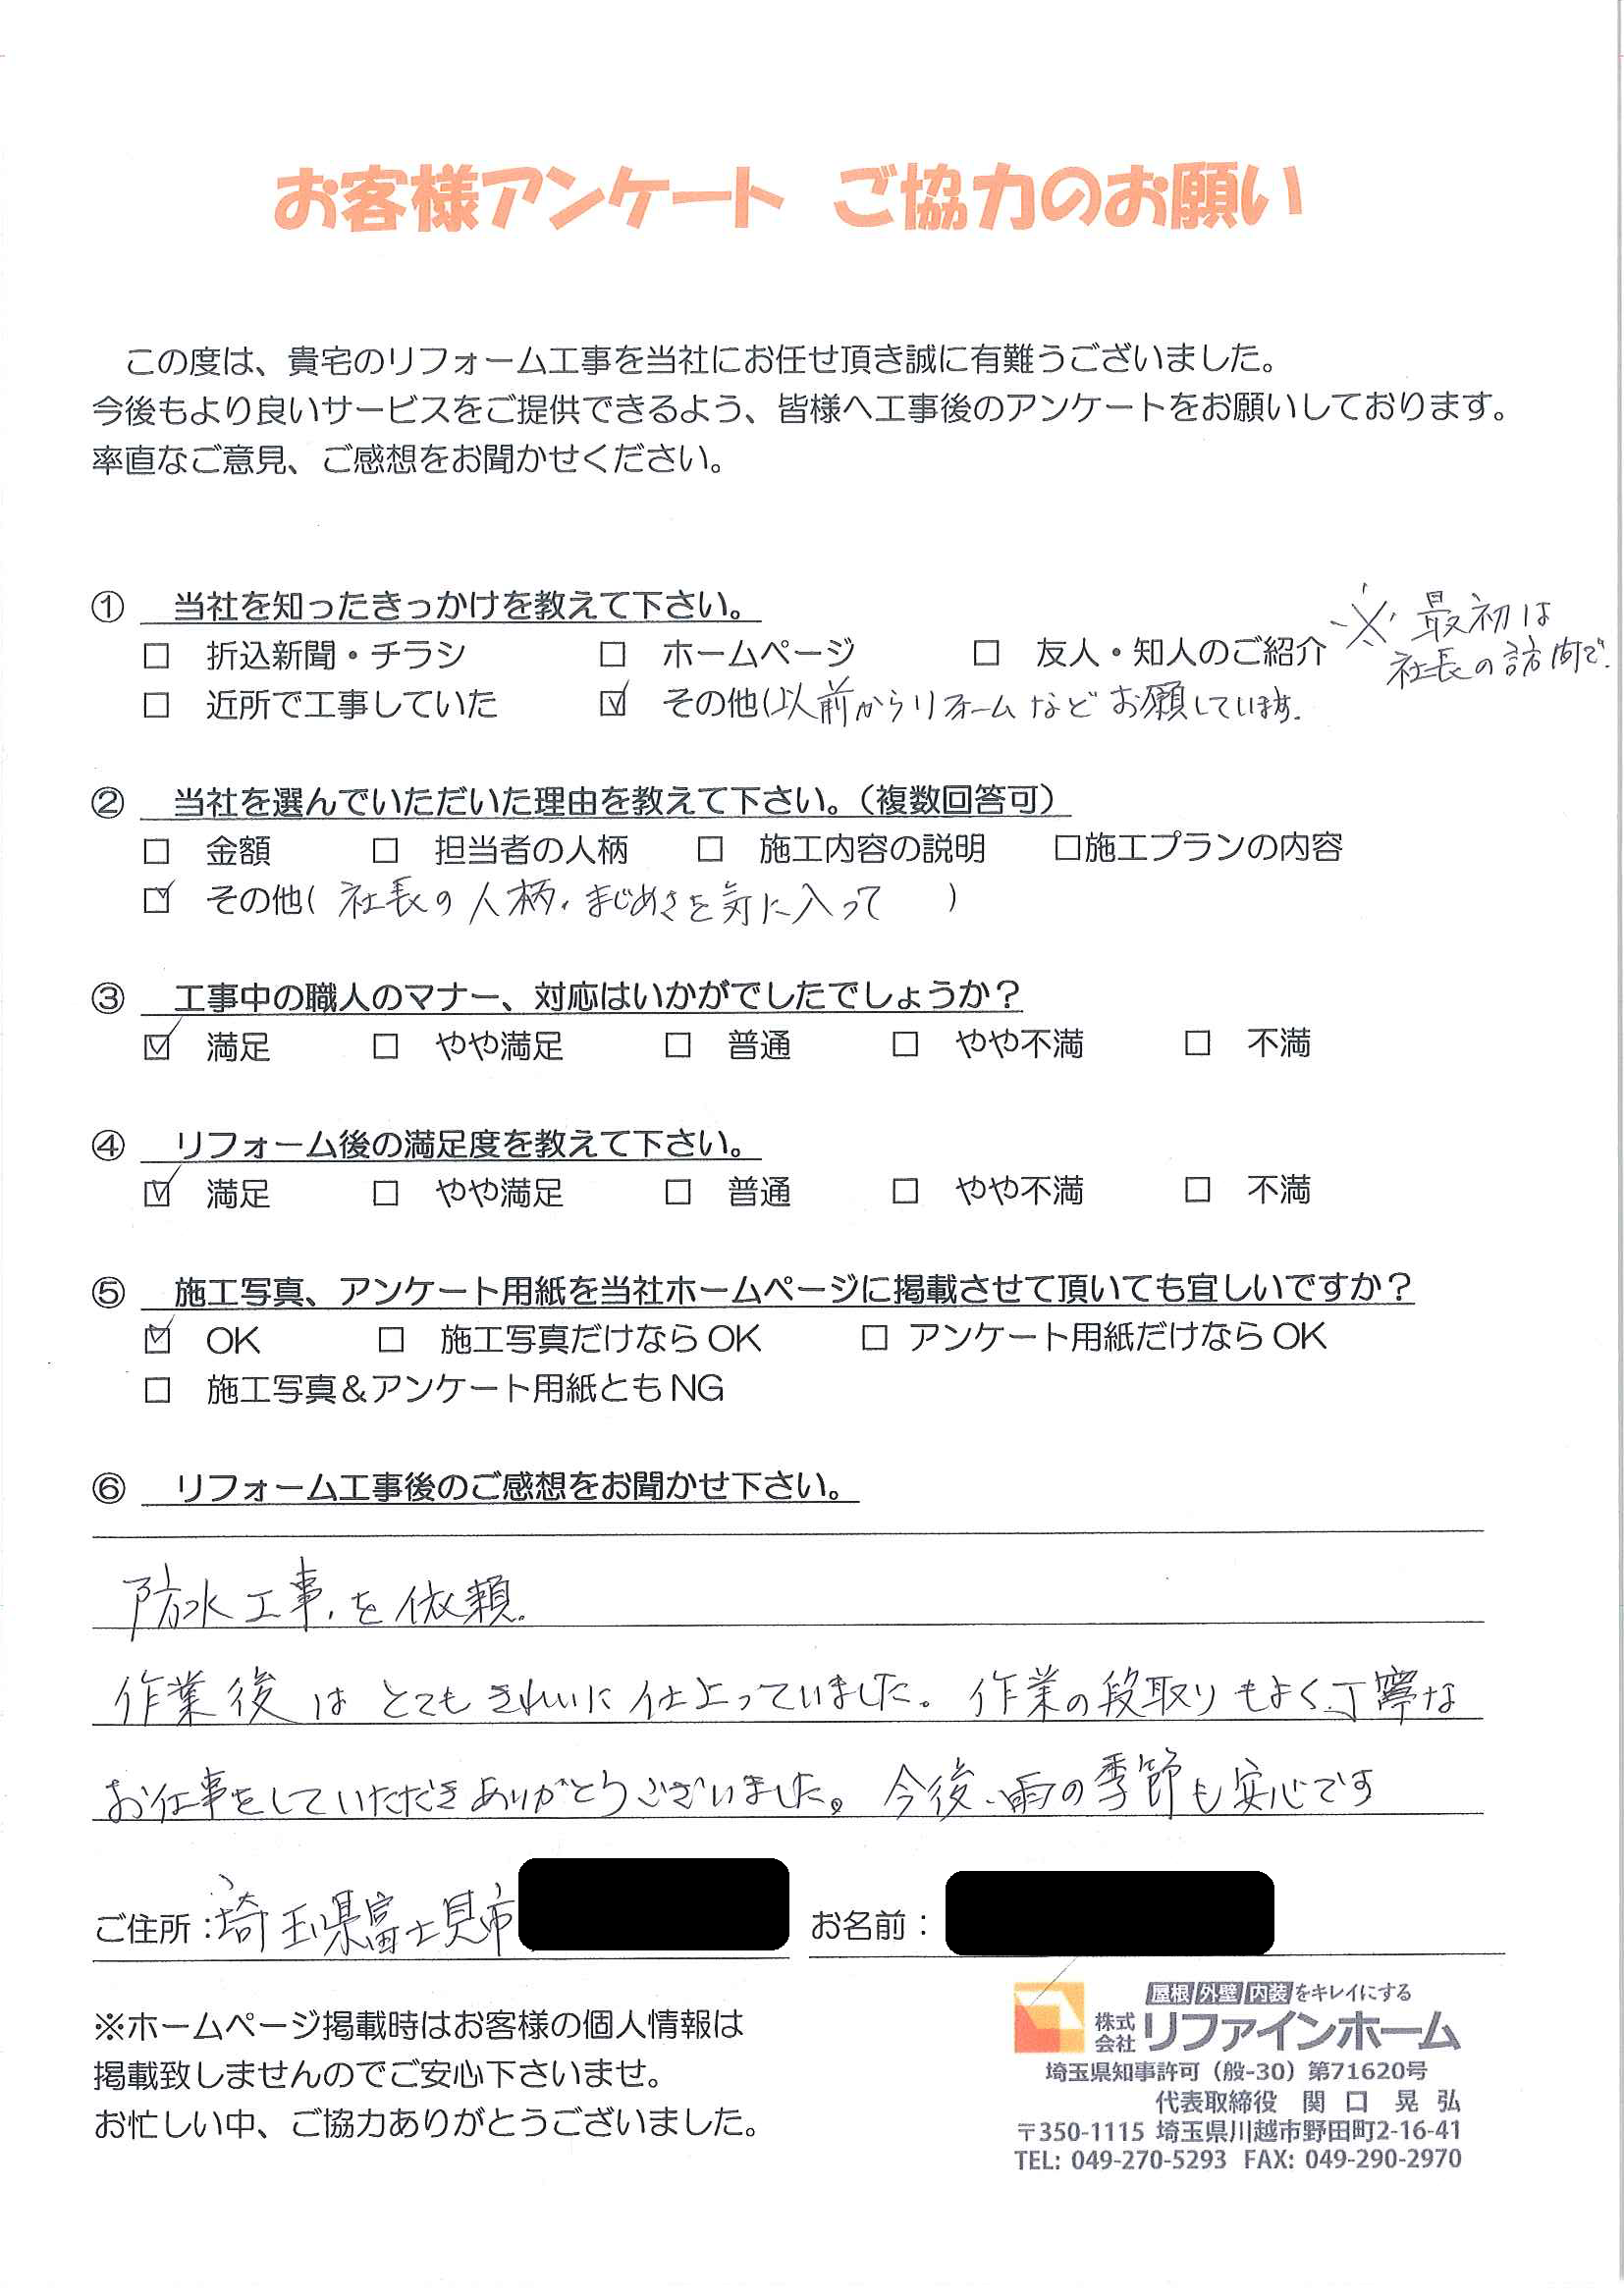 お客様アンケート ご協力のお願い
この度は、貴宅のリフォーム工事を当社にお任せ頂き誠に有難うございました。
今後もより良いサービスをご提供できるよう、皆様へ工事後のアンケートをお願いしております。
率直なご意見、ご感想をお聞かせください。
① 当社を知ったきっかけを教えて下さい。
□ 折込新聞・チラシ □ ホームページ □ 友人・知人のご紹介
※ 最初は
社長の訪問で.
□ 近所で工事していた ☑ その他(以前からリフォームなどお願しています.
② 当社を選んでいただいた理由を教えて下さい。(複数回答可)
□ 金額 □ 担当者の人柄 □ 施工内容の説明 □施工プランの内容
☑ その他( 社長の人柄、まじめさを気に入って )
③ 工事中の職人のマナー、対応はいかがでしたでしょうか?
☑ 満足 □ やや満足 □ 普通 □ やや不満 □ 不満
④ リフォーム後の満足度を教えて下さい。
☑ 満足 □ やや満足 □ 普通 □ やや不満 □ 不満
⑤ 施工写真、アンケート用紙を当社ホームページに掲載させて頂いても宜しいですか?
☑ OK □ 施工写真だけなら OK □ アンケート用紙だけなら OK
□ 施工写真&アンケート用紙とも NG
⑥ リフォーム工事後のご感想をお聞かせ下さい。
防水工事を依頼.
作業後はとてもきれいに仕上っていました。作業の段取りもよく丁寧な
お仕事をしていただきありがとうございました。今後、雨の季節も安心です
ご住所:埼玉県富士見市 お名前:
※ホームページ掲載時はお客様の個人情報は
掲載致しませんのでご安心下さいませ。
お忙しい中、ご協力ありがとうございました。
屋根 外壁 内装をキレイにする
株式会社 リファインホーム
埼玉県知事許可(般-30)第71620号
代表取締役 関口 晃弘
〒350-1115 埼玉県川越市野田町2-16-41
TEL: 049-270-5293 FAX: 049-290-2970